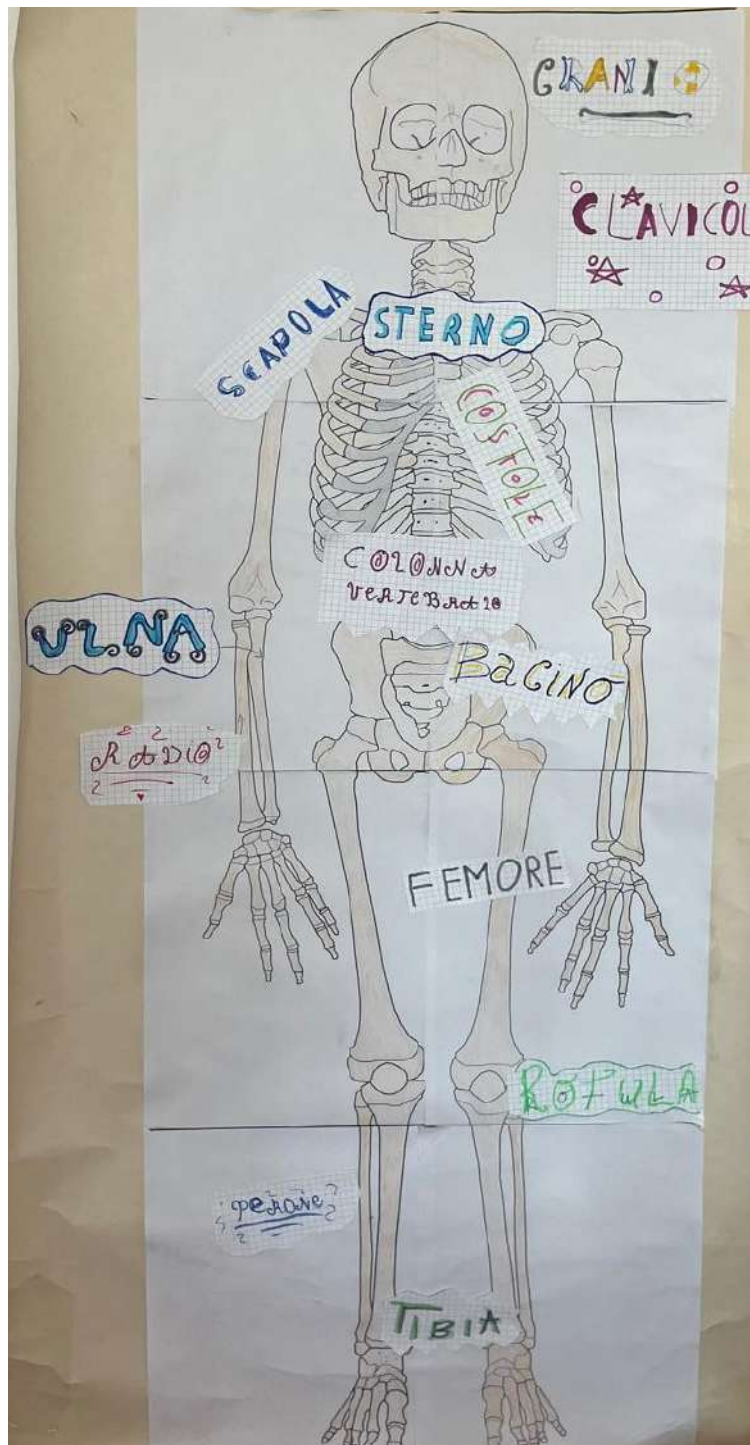 CRANIO
CLAVICOL
SCAPOLA
STERNO
COSTOLE
COLONNA
VERTEBRALE
ULNA
BACINO
RADIO
FEMORE
ROTULA
PERONE
TIBIA